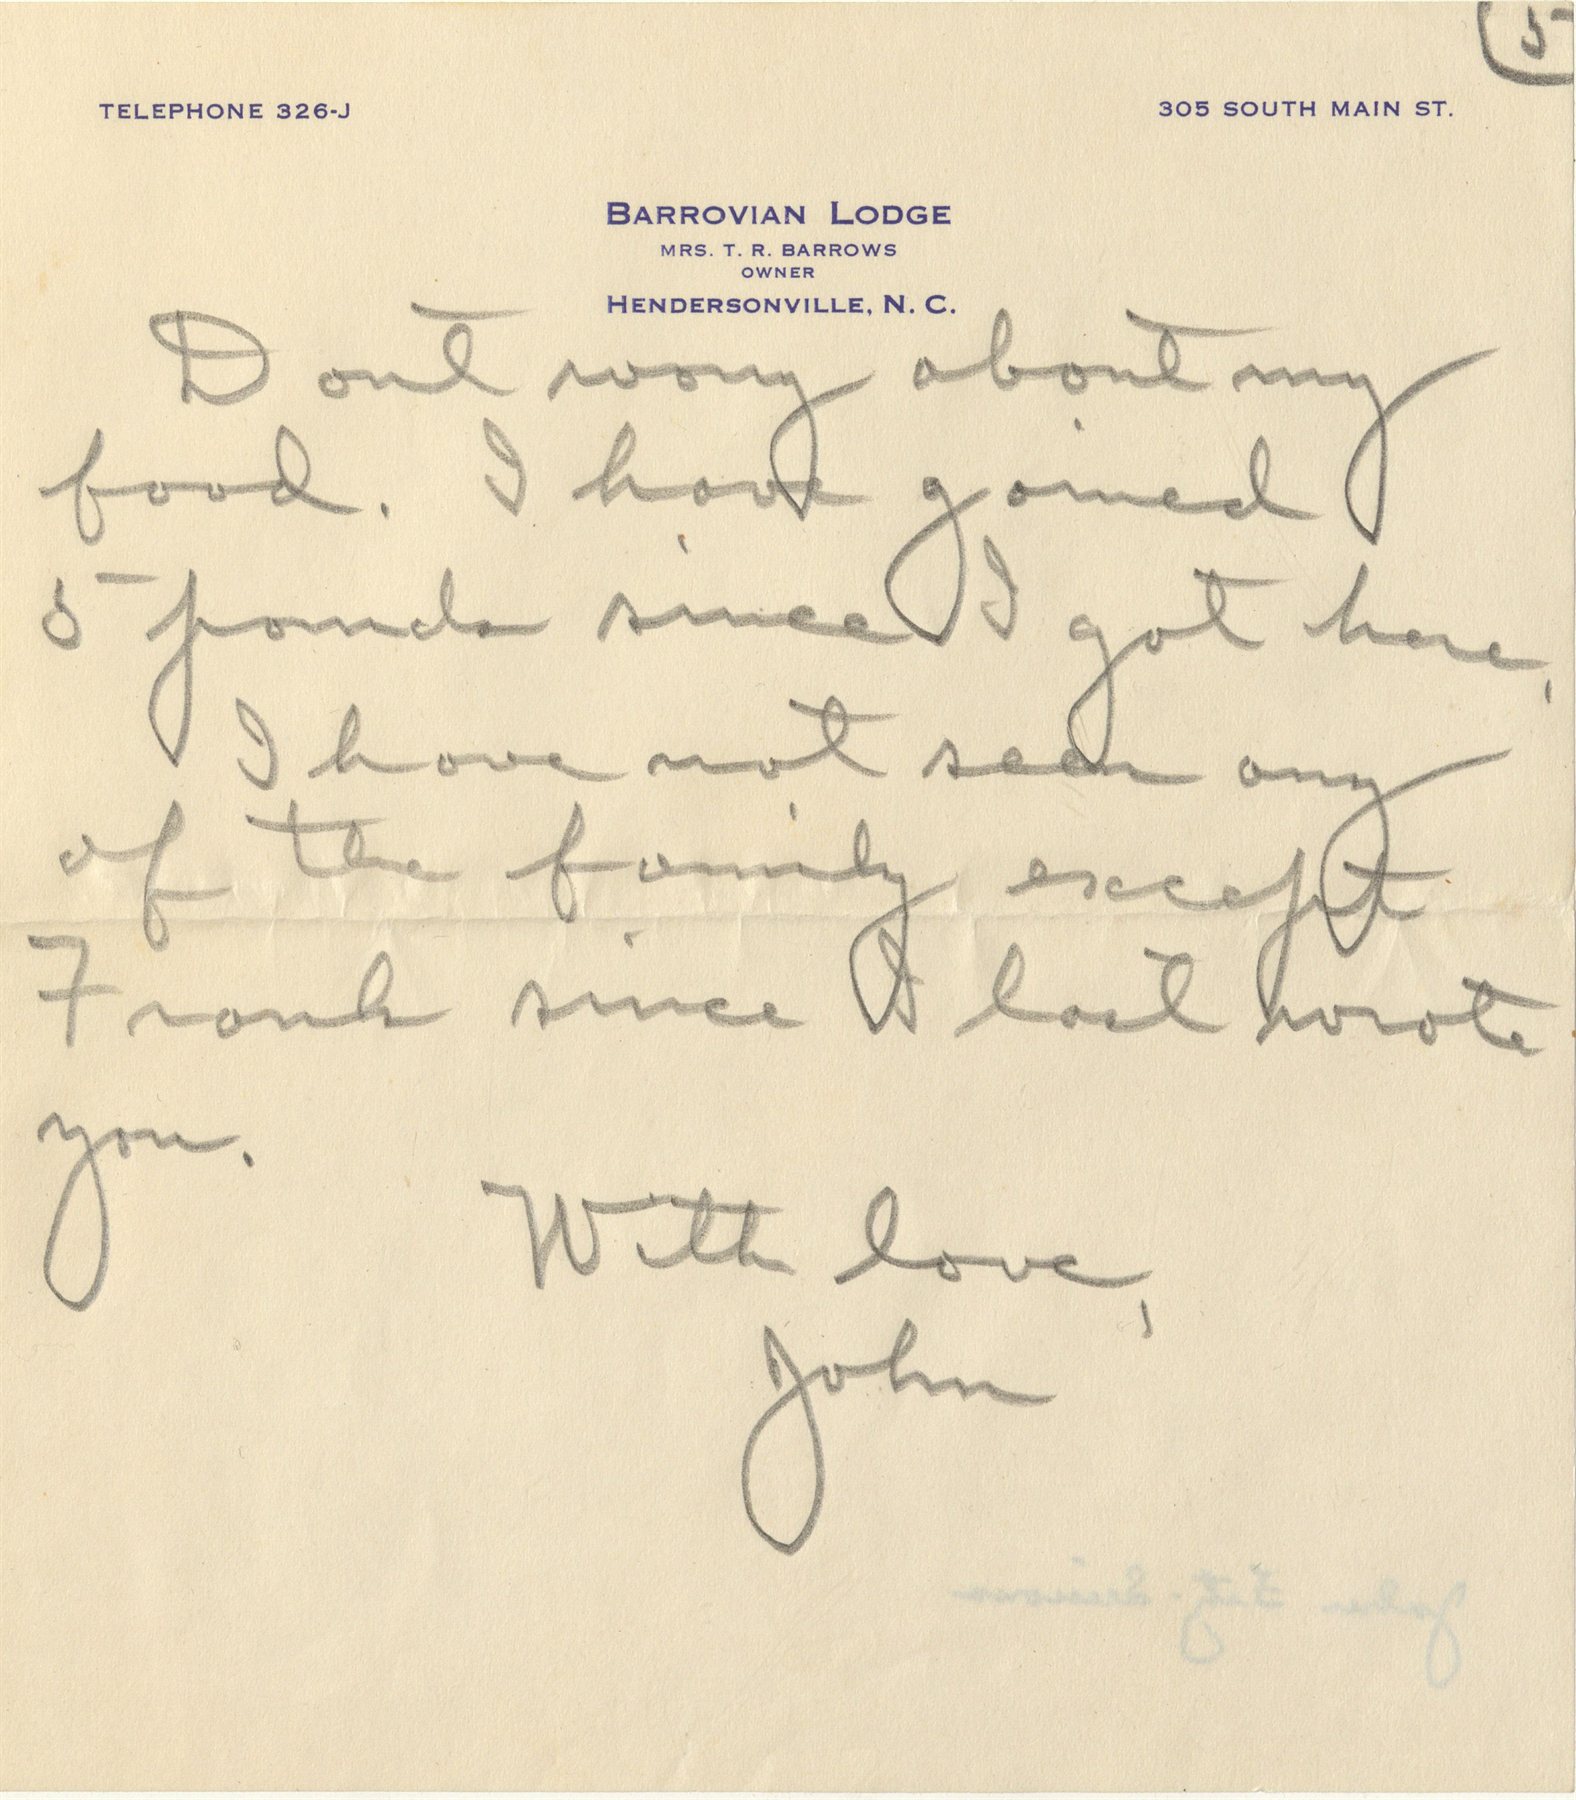 5
TELEPHONE 326-J
305 SOUTH MAIN ST.
BARROVIAN LODGE
MRS. T. R. BARROWS
OWNER
HENDERSONVILLE, N. C.
Dont worry about my
food. I have gained
5 pounds since I got here.
I have not seen any
of the family except
Frank since I last wrote
you.
With love,
John
John Fitz-Simons